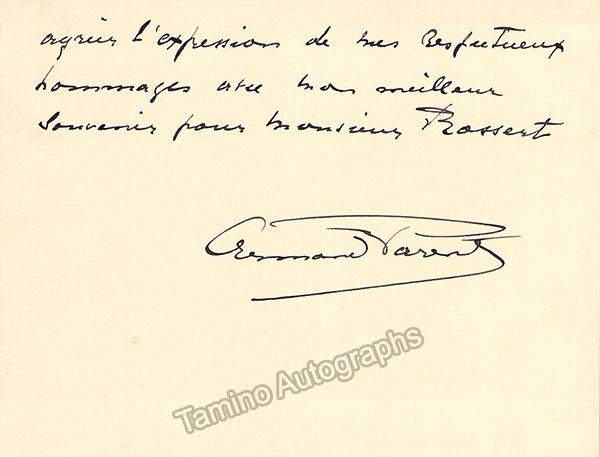 agréer l'expression de mes Respectueux
hommages avec mon meilleur
Souvenir pour Monsieur Bossert
Armand Parent
Tamino Autographs